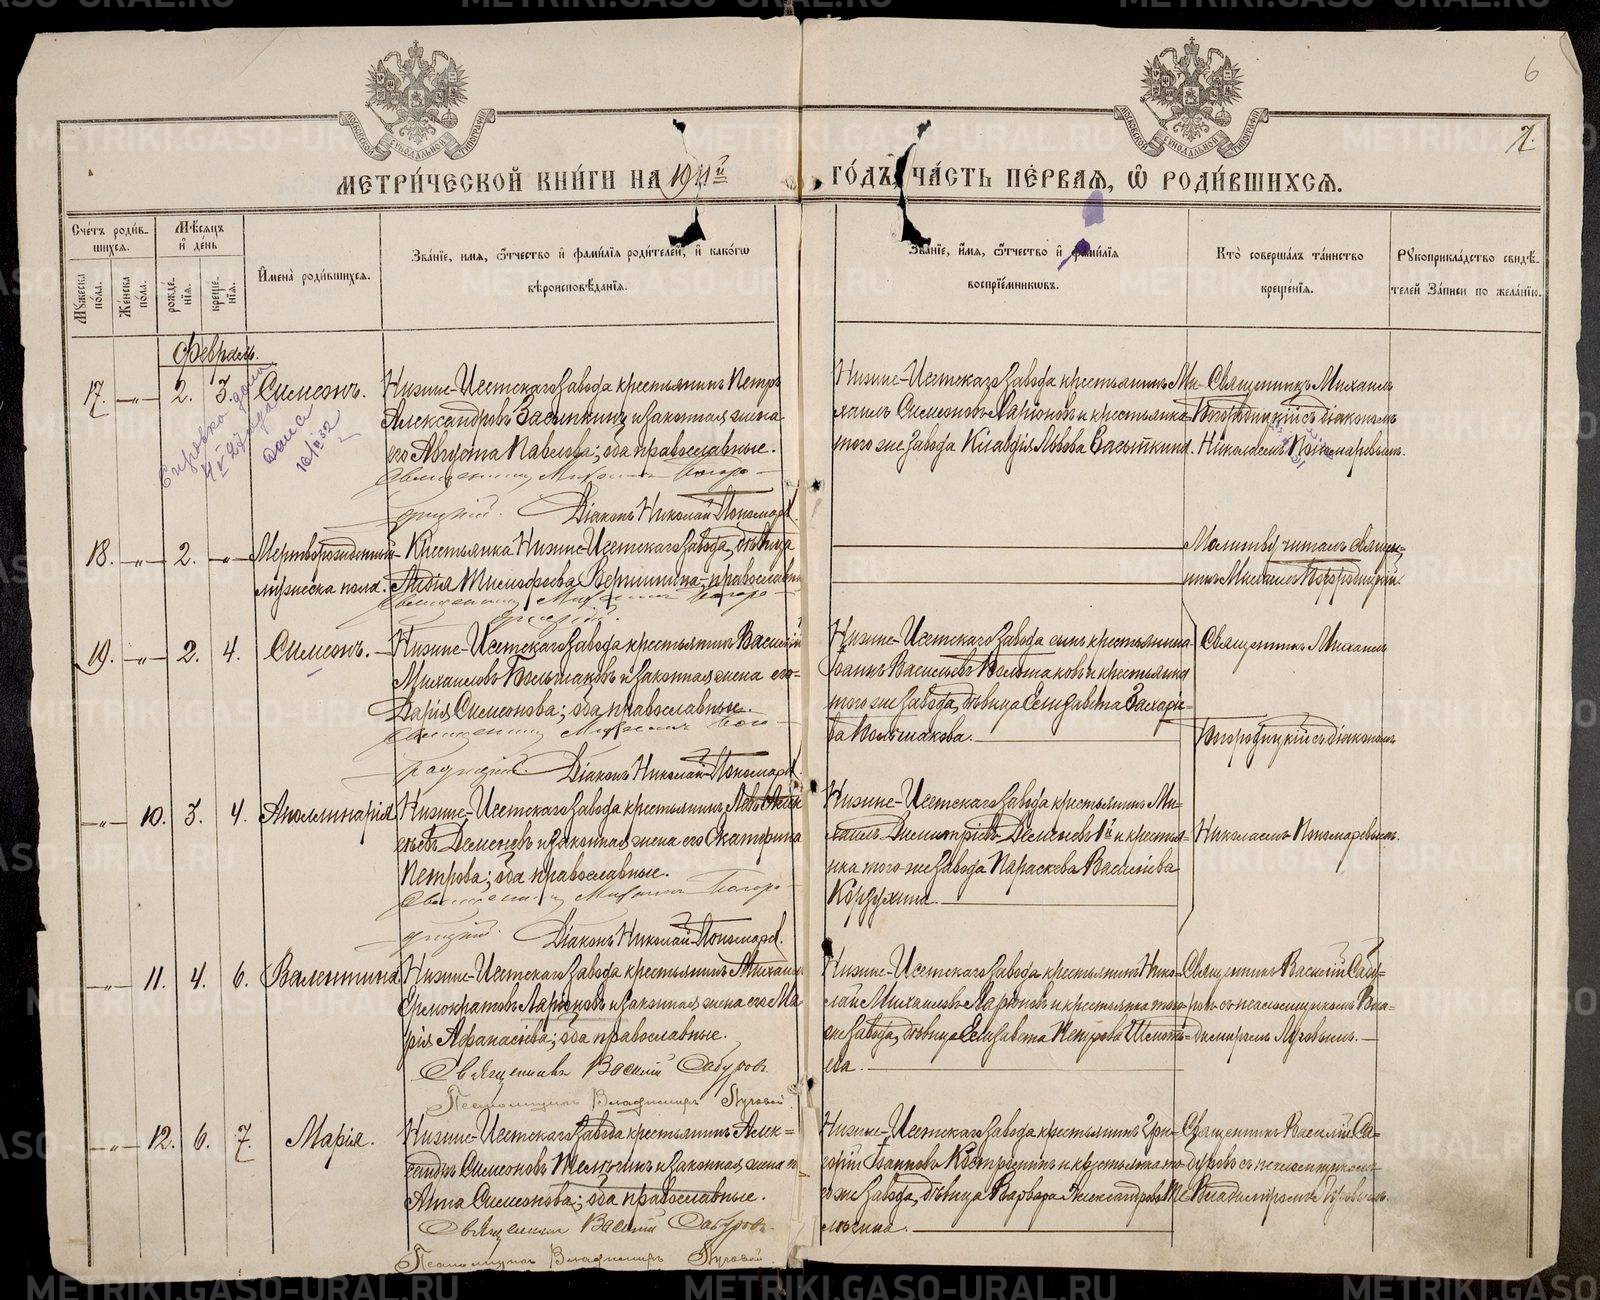 6
7.
МЕТРИ́ЧЕСКОЙ КНИ́ГИ НА 1911й ГО́ДЪ, ЧА́СТЬ ПЕ́РВАѦ, Ѽ РОДИ́ВШИХСѦ.
Сче́тъ роди́вшихсѧ.
Мꙋжеска по́ла.
Же́нска по́ла.
Мѣ́сѧцъ и҆ де́нь
рожде́нїѧ.
креще́нїѧ.
И҆мена̀ роди́вшихсѧ.
Зва́нїе, и҆мѧ, ѻ҆́тчество и҆ фами́лїѧ роди́телей, и҆ како́гѡ
вѣроисповѣ́данїѧ.
Зва́нїе, и҆́мѧ, ѻ҆́тчество и҆ фами́лїѧ
воспрїе́мникѡвъ.
Кто̀ соверша́лъ та́инство
креще́нїѧ.
Рꙋкоприкла́дство свидѣ́-
телей За́писи по жела́нїю.
Февраль.
17. —„— 2. 3. Симеонъ.
Нижне-Исетскаго завода крестьянинъ Петръ
Александровъ Засыпкинъ и законная жена
его Августа Павлова; оба православные.
Священникъ Михаилъ Богородицкій.
Діаконъ Николай Пономаревъ.
Нижне-Исетскаго завода крестьянинъ Ми-
хаилъ Симеоновъ Ларіоновъ и крестьянка
того же завода Клавдія Львова Засыпкина.
Священникъ Михаилъ
Богородицкій съ діакономъ
Николаемъ Пономаревымъ.
Справка дана
Дана
16/II 32
18. —„— 2. —„— Мертворожденный
мужеска пола.
Крестьянка Нижне-Исетскаго завода, дѣвица
Лидія Тимофеева Вершинина, православная
Священникъ Михаилъ Богородицкій.
Молитву читалъ священ-
никъ Михаилъ Богородицкій.
19. —„— 2. 4. Симеонъ.
Нижне-Исетскаго завода крестьянинъ Василій
Михаиловъ Большаковъ и законная жена его
Дарія Симеонова; оба православные.
Священникъ Михаилъ Богородицкій.
Діаконъ Николай Пономаревъ.
Нижне-Исетскаго завода сынъ крестьянина
Іоаннъ Васильевъ Большаковъ и крестьянка
того же завода, дѣвица Елизавета Захаро-
ва Большакова.
Священникъ Михаилъ
Богородицкій съ діакономъ
—„— 10. 3. 4. Аполлинарія.
Нижне-Исетскаго завода крестьянинъ Левъ
Деменевъ и законная жена его Екатерина
Петрова; оба православные.
Священникъ Михаилъ Богородицкій.
Діаконъ Николай Пономаревъ.
Нижне-Исетскаго завода крестьянинъ Ми-
хаилъ Димитріевъ Деменевъ 1й и крестья-
нка того же завода Параскева Васильева
Корзухина.
Николаемъ Пономаревымъ.
—„— 11. 4. 6. Валентина.
Нижне-Исетскаго завода крестьянинъ Михаилъ
Ермократовъ Ларіоновъ и законная жена его Ма-
рія Афанасьева; оба православные.
Священникъ Василій Сабуровъ
Псаломщикъ Владимиръ Луговой.
Нижне-Исетскаго завода крестьянинъ Нико-
лай Михаиловъ Ларіоновъ и крестьянка того
же завода, дѣвица Елизавета Петрова
Священникъ Василій Сабу-
ровъ съ псаломщикомъ Вла-
димиромъ Луговымъ.
—„— 12. 6. 7. Марія.
Нижне-Исетскаго завода крестьянинъ Алек-
сандръ Симеоновъ Телегинъ и законная жена его
Анна Симеонова; оба православные.
Священникъ Василій Сабуровъ
Псаломщикъ Владимиръ Луговой.
Нижне-Исетскаго завода крестьянинъ Гри-
горій Іоанновъ Костромин и крестьянка то-
го же завода, дѣвица Варвара Александрова Те-
легина.
Священникъ Василій Са-
буровъ съ псаломщикомъ
Владиміромъ Луговымъ.
METRIKI.GASO-URAL.RU